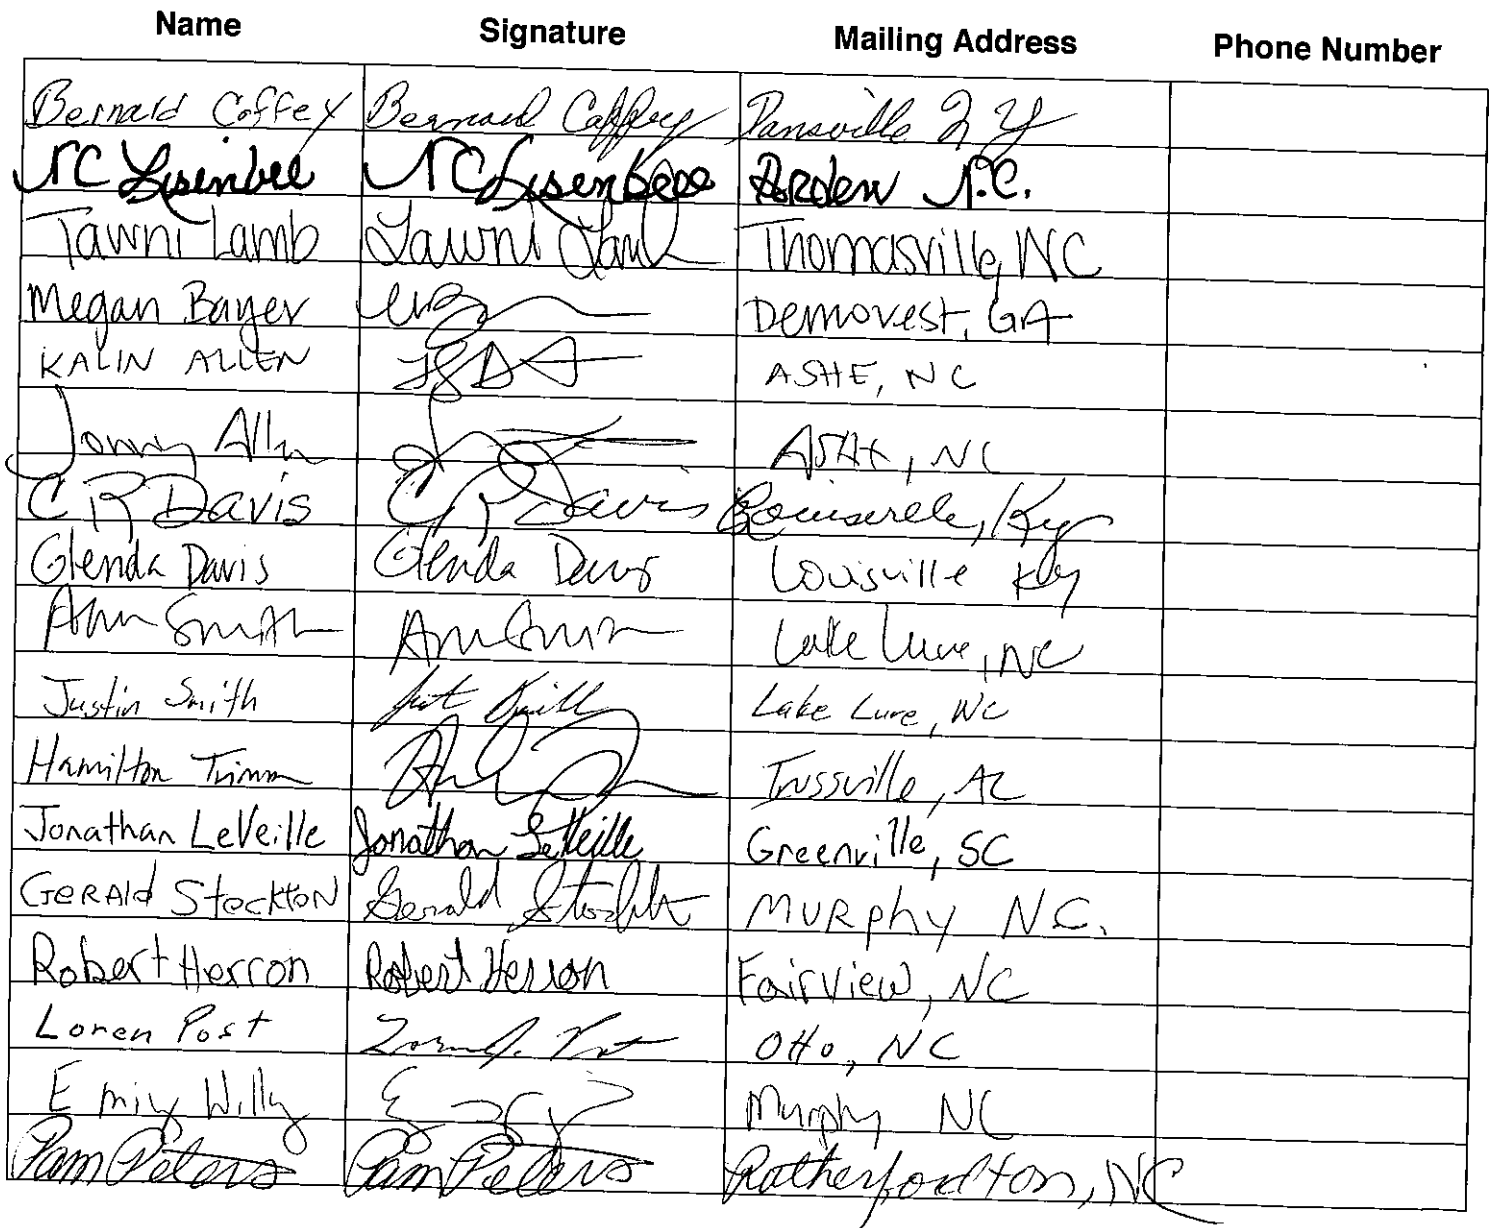 Name Signature Mailing Address Phone Number
Bernard Coffey Bernard Coffey Dansville NY
NC Lisenbee NC Lisenbee Arden N.C.
Tawni Lamb Tawni Lamb Thomasville, NC
Megan Bayer Demorest, GA
KALIN ALLEN ASHE, NC
Jonny Allen ASHE, NC
C R Davis C R Davis Louisville, Ky
Glenda Davis Glenda Davis Louisville Ky
Ann Smith Ann Smith Lake Lure, NC
Justin Smith Lake Lure, NC
Hamilton Timm Trussville, AL
Jonathan LeVeille Jonathan LeVeille Greenville, SC
GERAld StockTON Gerald Stockton MURphy N.C.
Robert Herron Robert Herron Fairview, NC
Loren Post Loren J. Post Otto, NC
Emily Willy Murphy NC
Pam Peters Pam Peters Rutherfordton, NC